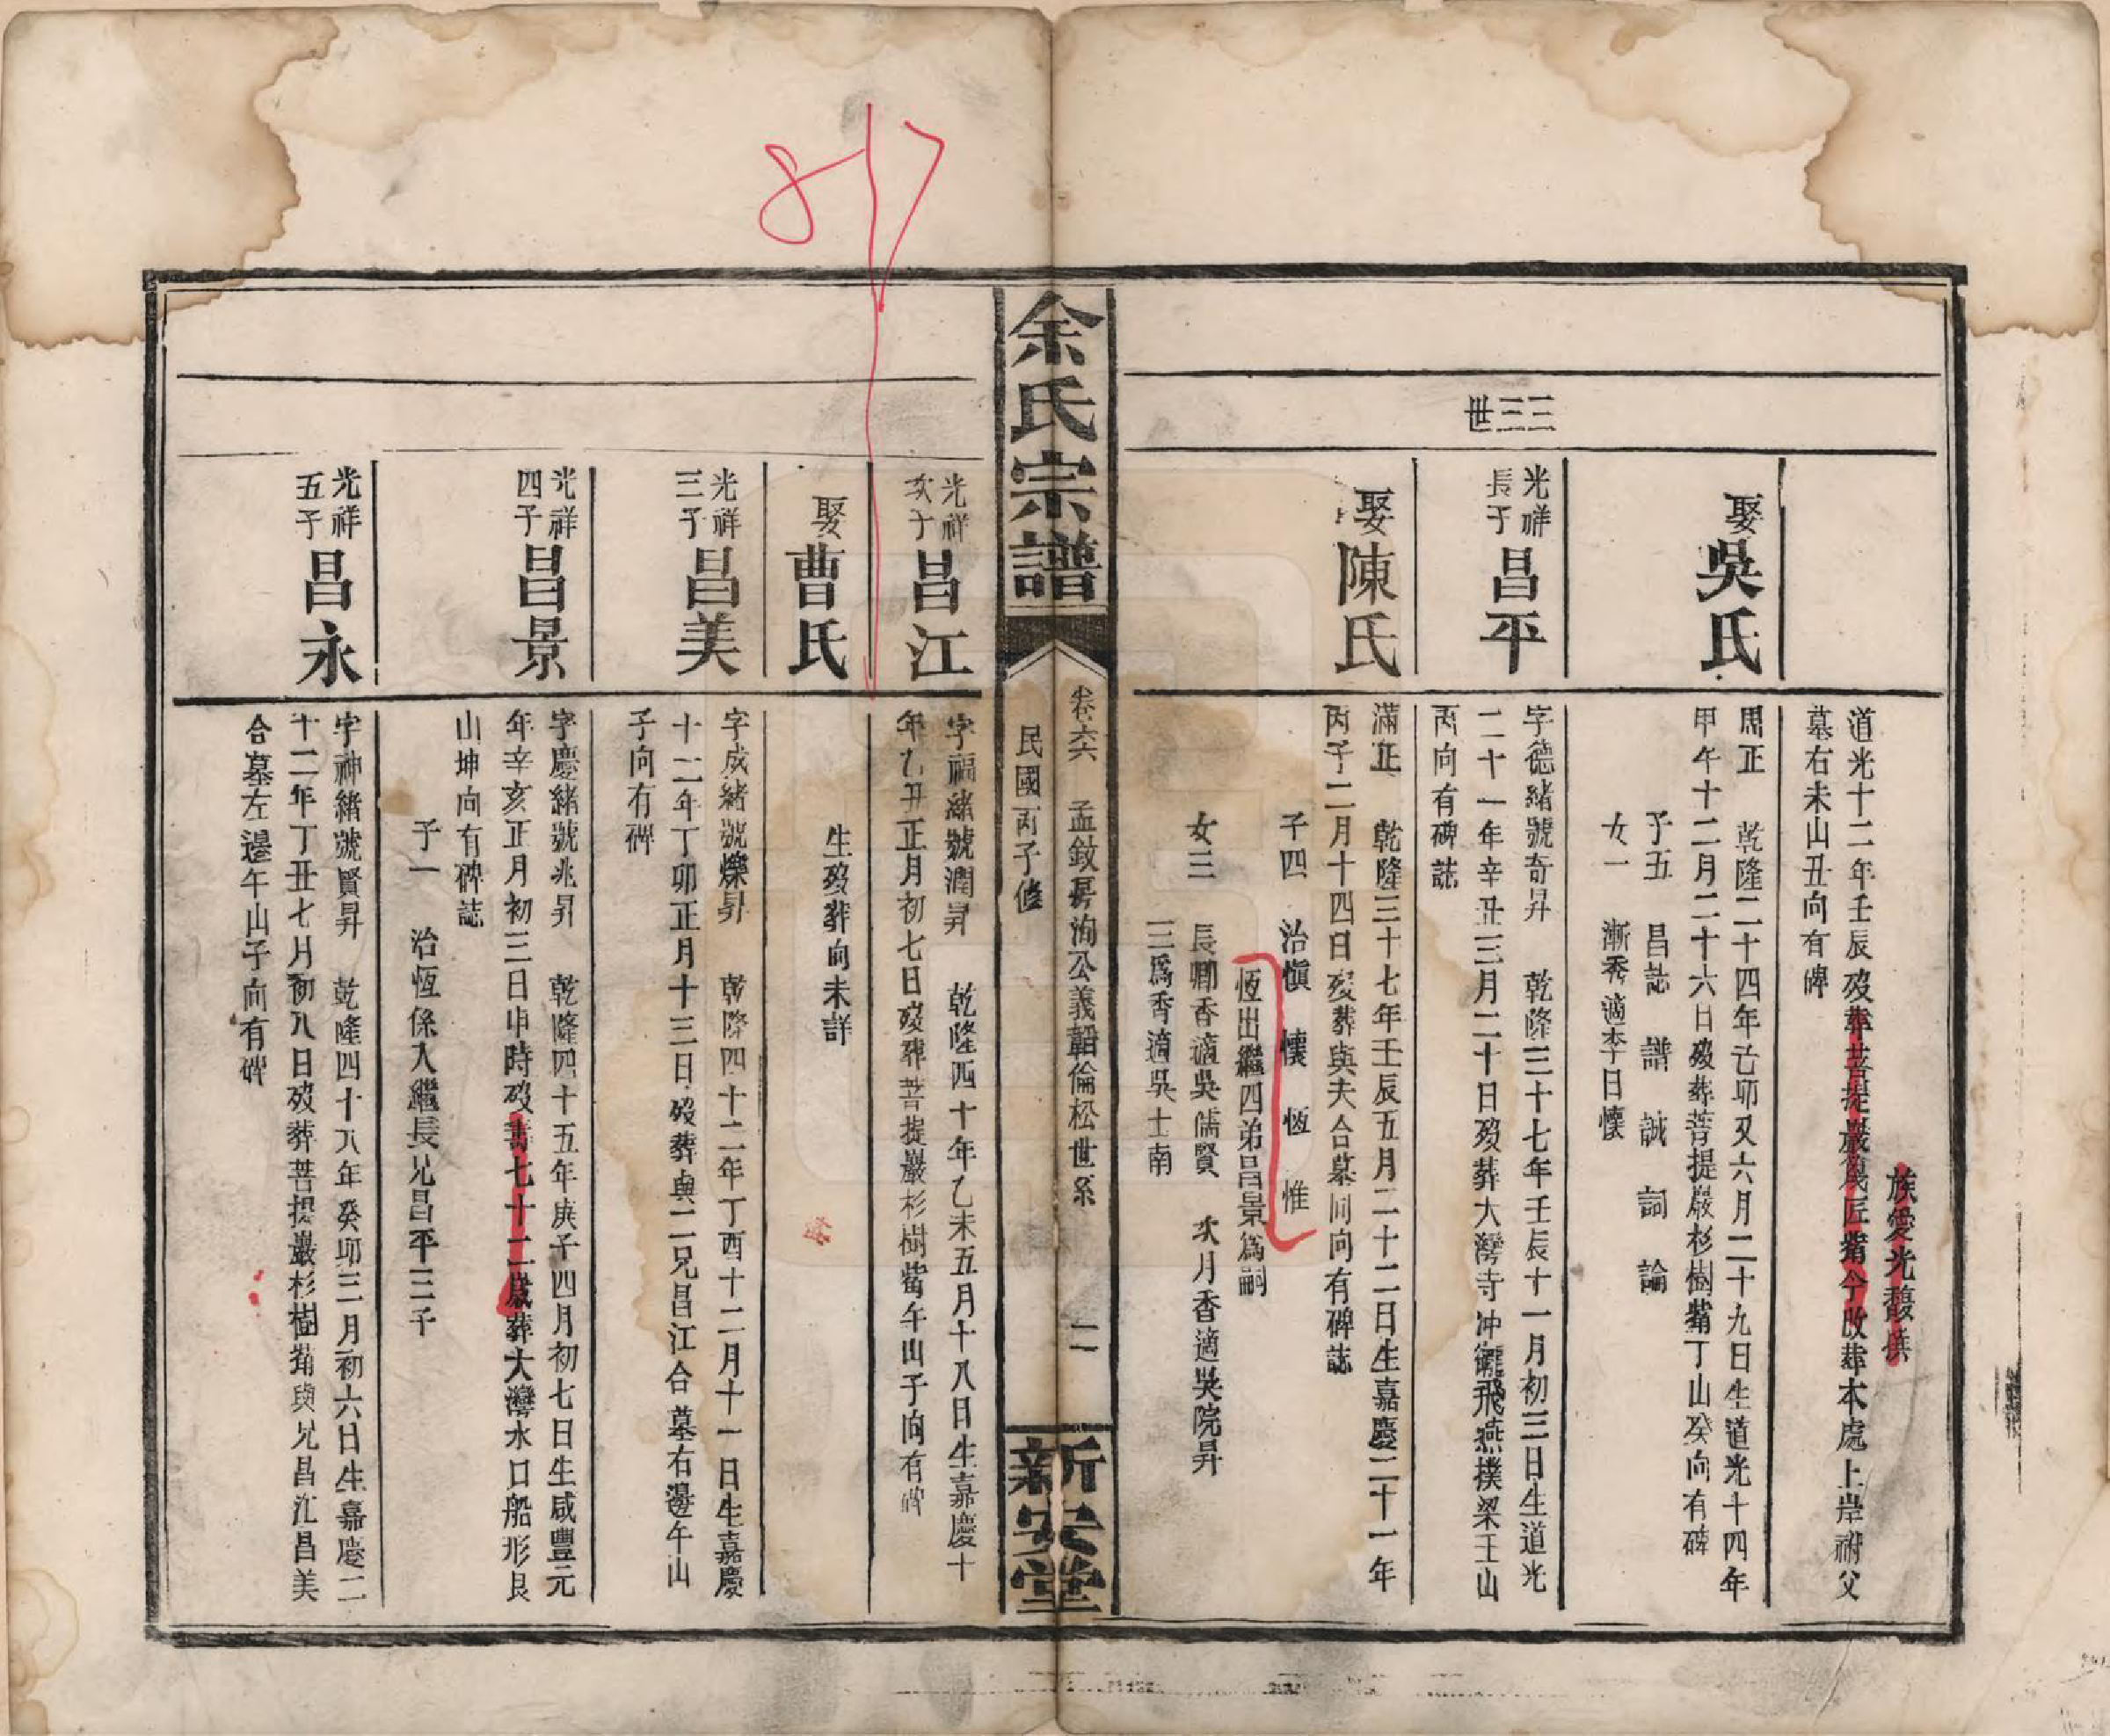 817
族愛光馥撰
道光十二年壬辰歿葬菩提巖瓦匠觜今改葬本處上岸祔父
墓右未山丑向有碑
娶吳氏
周正 乾隆二十四年己卯又六月二十九日生道光十四年
甲午十二月二十六日歿葬菩提巖杉樹觜丁山癸向有碑
子五 昌誌 譜 誠 詞 論
女一 漸秀適李日懷
三三世
光祥長子昌平
字德緒號奇昇 乾隆三十七年壬辰十一月初三日生道光
二十一年辛丑三月二十日歿葬大灣寺冲衝飛燕撲梁壬山
丙向有碑誌
娶陳氏
滿正 乾隆三十七年壬辰五月二十二日生嘉慶二十一年
丙子二月十四日歿葬與夫合墓同向有碑誌
子四 治愼 懷 恆 惟
恆出繼四弟昌景爲嗣
女三 長卿香適吳儒賢 次月香適吳院昇
三爲香適吳士南
余氏宗譜
卷六 孟敘房洵公義韶倫松世系 二
民國丙子修
新安堂
光祥次子昌江
字福緒號潤昇 乾隆四十年乙未五月十八日生嘉慶十
年乙丑正月初七日歿葬菩提巖杉樹觜午山子向有碑
娶曹氏
生歿葬向未詳
光祥三子昌美
字成緒號爍昇 乾隆四十二年丁酉十二月十一日生嘉慶
十二年丁卯正月十三日歿葬與二兄昌江合墓右邊午山
子向有碑
光祥四子昌景
字慶緒號兆昇 乾隆四十五年庚子四月初七日生咸豐元
年辛亥正月初三日申時歿壽七十二歲葬大灣水口船形艮
山坤向有碑誌
子一 治恆係入繼長兄昌平三子
光祥五子昌永
字神緒號賢昇 乾隆四十八年癸卯三月初六日生嘉慶二
十二年丁丑七月初八日歿葬菩提巖杉樹觜與兄昌江昌美
合墓左邊午山子向有碑